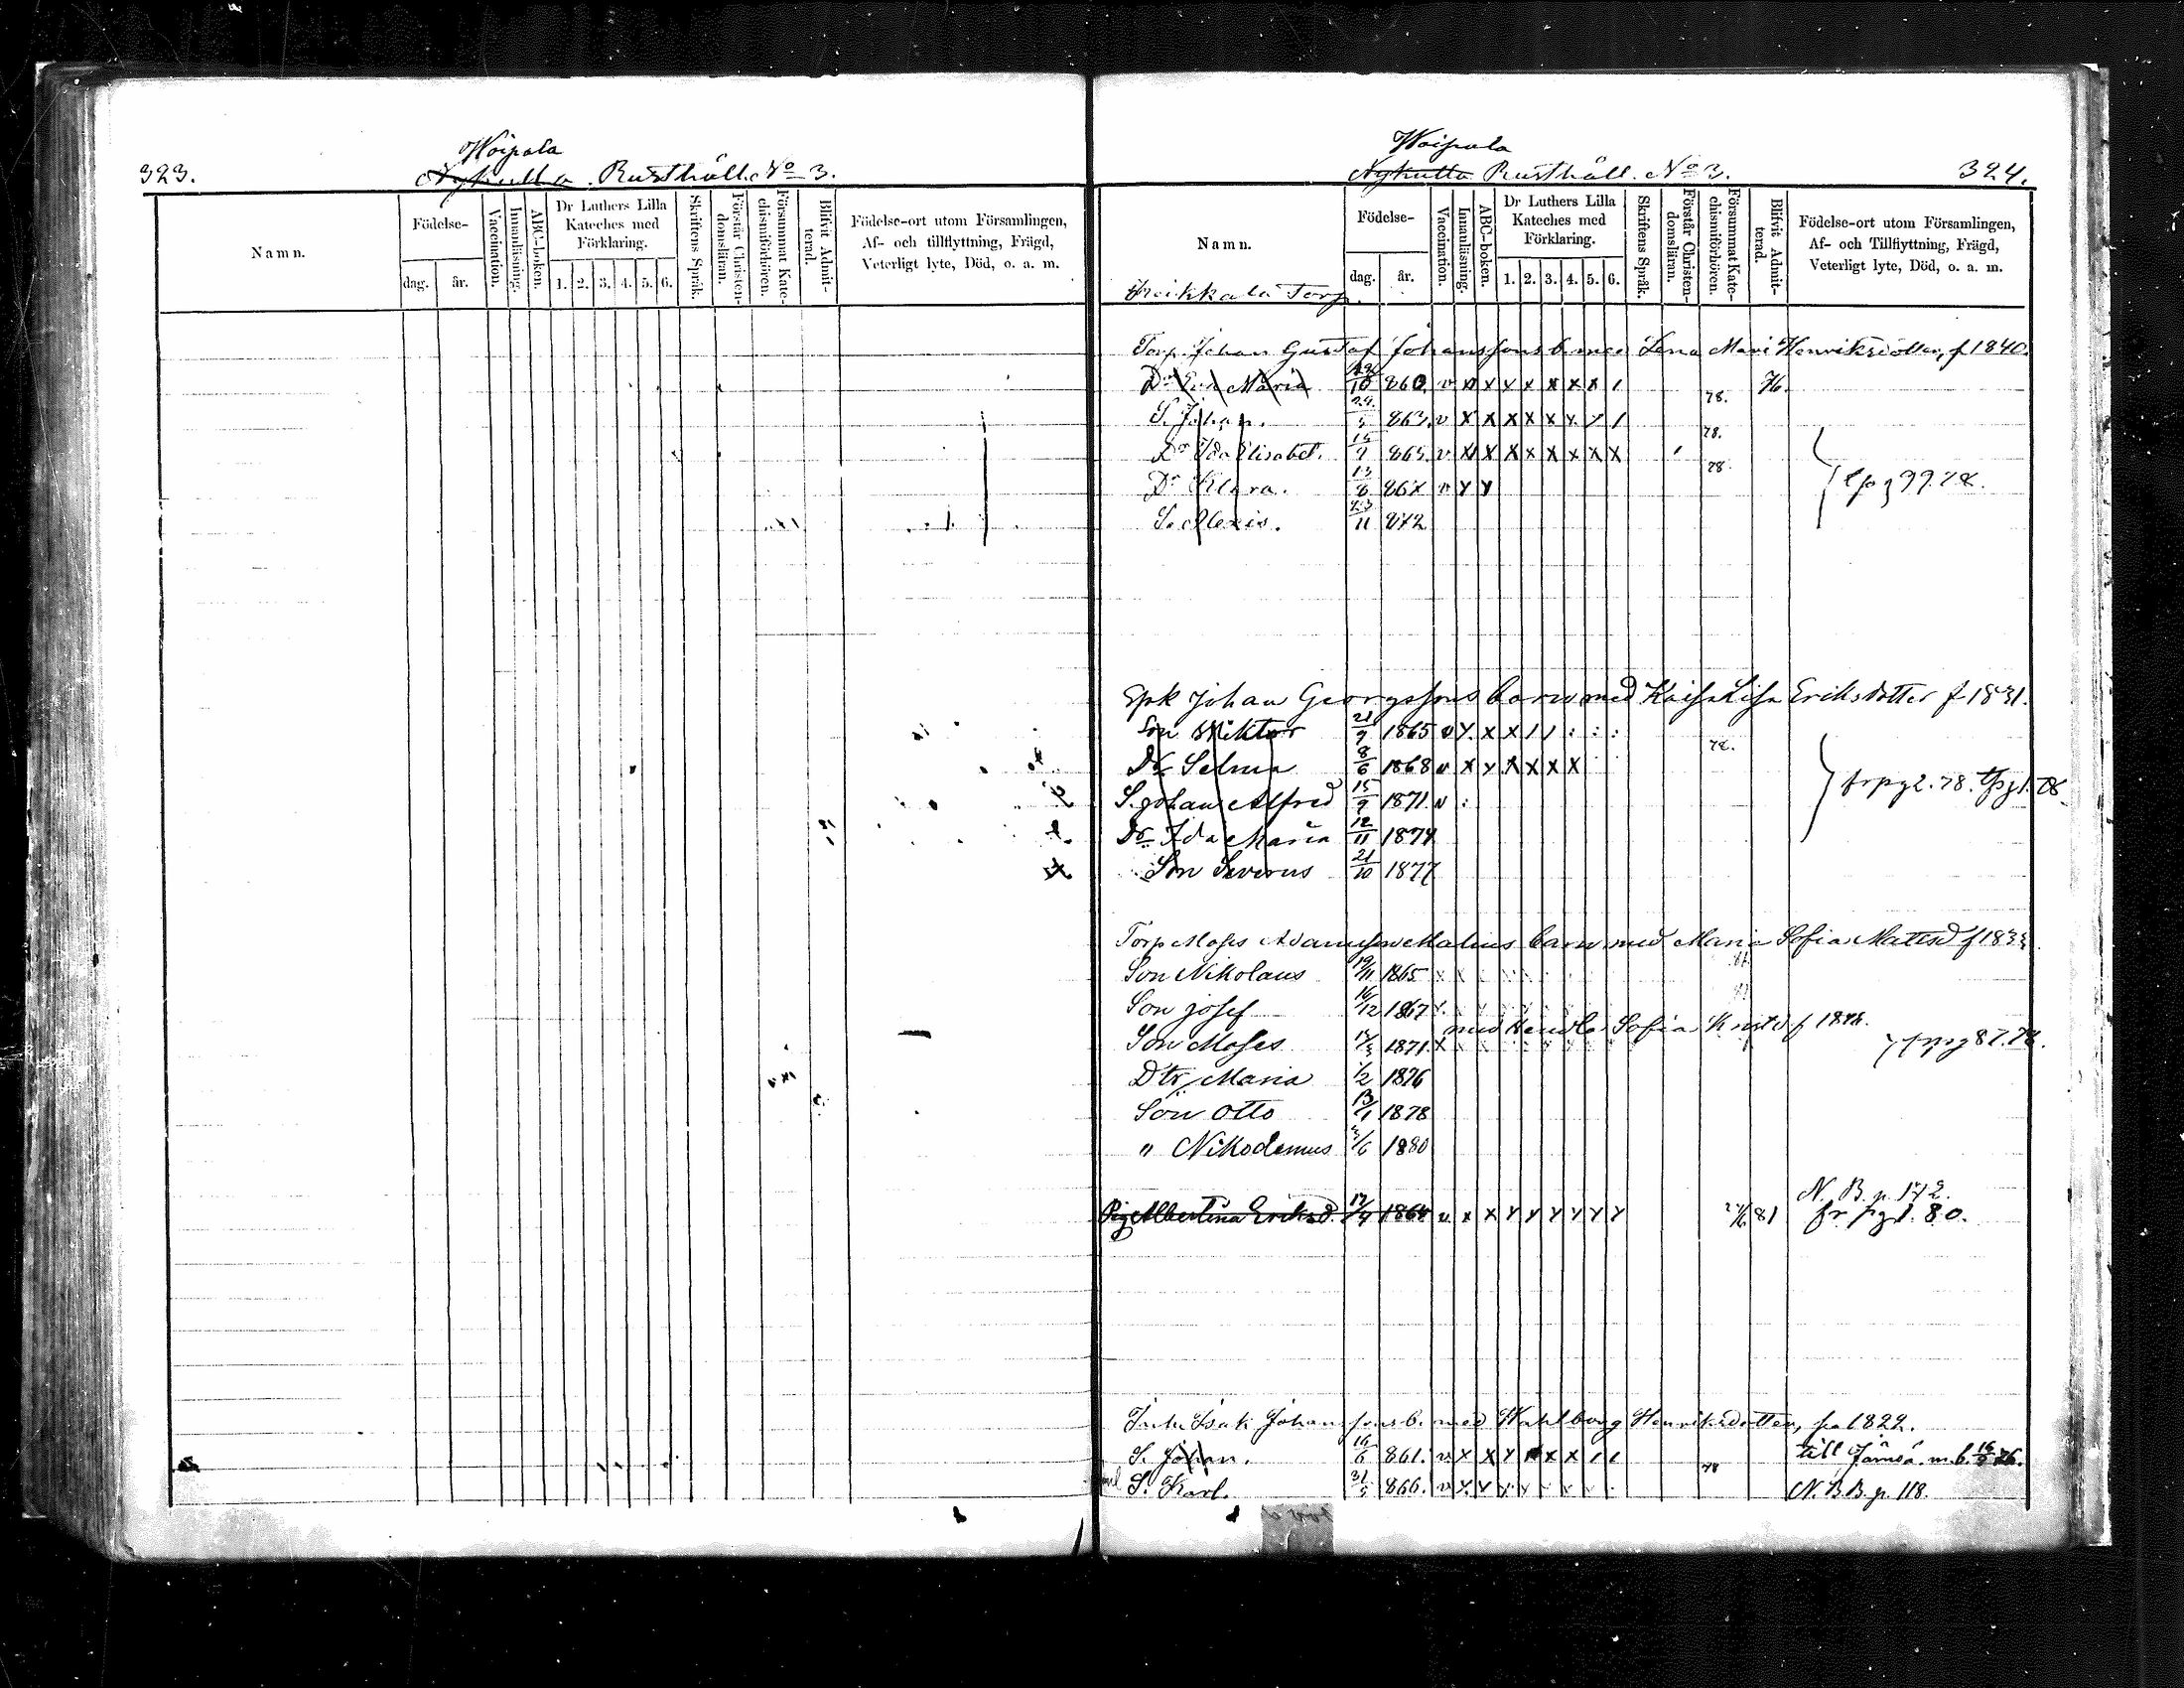 323.
Woipala
Nykulla Rusthåll. No 3.
Namn.
Födelse-
dag.
år.
Vaccination.
Innanläsning.
ABC-boken.
Dr Luthers Lilla
Kateches med
Förklaring.
1. 2. 3. 4. 5. 6.
Skriftens Språk.
Förstår Christen-
domsläran.
Försummat Kate-
chismiförhören.
Blifvit Admit-
terad.
Födelse-ort utom Församlingen,
Af- och tillflyttning, Frägd,
Veterligt lyte, Död, o. a. m.
Woipala
Nykulla Rusthåll. No 3.
324.
Namn.
Födelse-
dag.
år.
Vaccination.
Innanläsning.
ABC-boken.
Dr Luthers Lilla
Kateches med
Förklaring.
1. 2. 3. 4. 5. 6.
Skriftens Språk.
Förstår Christen-
domsläran.
Försummat Kate-
chismiförhören.
Blifvit Admit-
terad.
Födelse-ort utom Församlingen,
Af- och Tillflyttning, Frägd,
Veterligt lyte, Död, o. a. m.
Heikkala Torp.
Torp. Johan Gustaf Johanssons b. med Lena Mari Henriksdotter, f 1840.
Dr Maria 10 860. v x x x x x x x / 76.
S. Johan. 863. v x x x x x x / 78.
Dr Ida Elisabet. 865. v x x x x x x x x 78.
Dr Klara. 13/8 867 v y y 78.
S. Alexis. 23/11 872
Johan Georgssons barn med Kajsa Lisa Eriksdotter f 1831.
Son Wiktor 21/9 1865 v x x x / / : : :
Dr Selma 8/6 1868 v x x x x x x 78.
S. Johan Alfred 15/9 1871 v :
Dr Ida Maria 12/11 1874
Son Severus 21/10 1877
Torp Moses Adamsson Malins barn med Maria Sofia Mattsd f 1833
Son Nikolaus 19/11 1865
Son Josef 16/12 1867
med Sofia f
Son Moses 1871 x
Dtr Maria 1/2 1876
Son Otto 13/1 1878
" Nikodemus 1880
N. B. p. 172.
Pig Albertina Eriksd. 1864 v x x y y y y y y 81 fr pg 1. 80.
Isak Johanssons b. med Wahlborg Henriksdotter, f. 1822.
S. Johan. 16/6 861. v x x x x x / / till Jämsä. m. b. 76.
S. Karl. 31/5 866. v y y 78 N. B. B. p. 118.